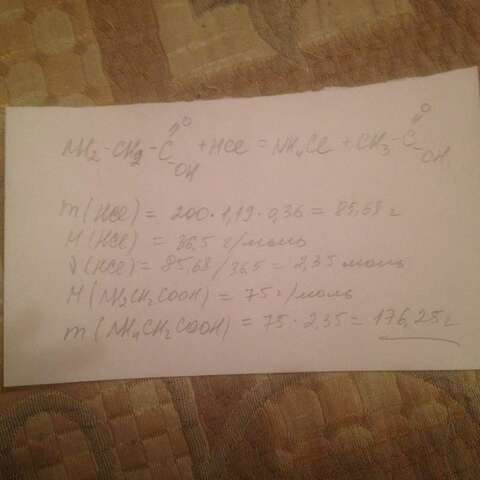 NH2-CH2-C=O-OH + HCl = NH4Cl + CH3-C=O-OH
m(HCl) = 200·1,19·0,36 = 85,68 г
M(HCl) = 36,5 г/моль
ν(HCl) = 85,68/36,5 = 2,35 моль
M(NH2CH2COOH) = 75 г/моль
m(NH4CH2COOH) = 75·2,35 = 176,25 г